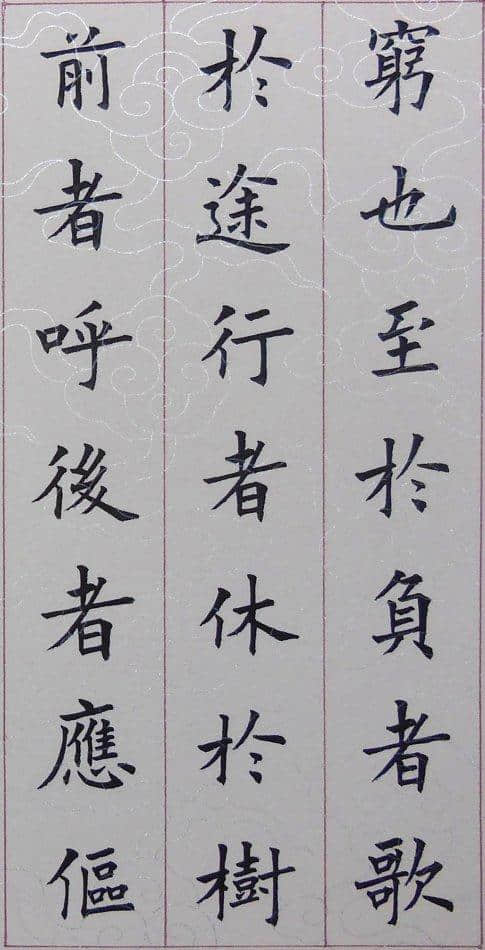 窮也至於負者歌
於途行者休於樹
前者呼後者應傴